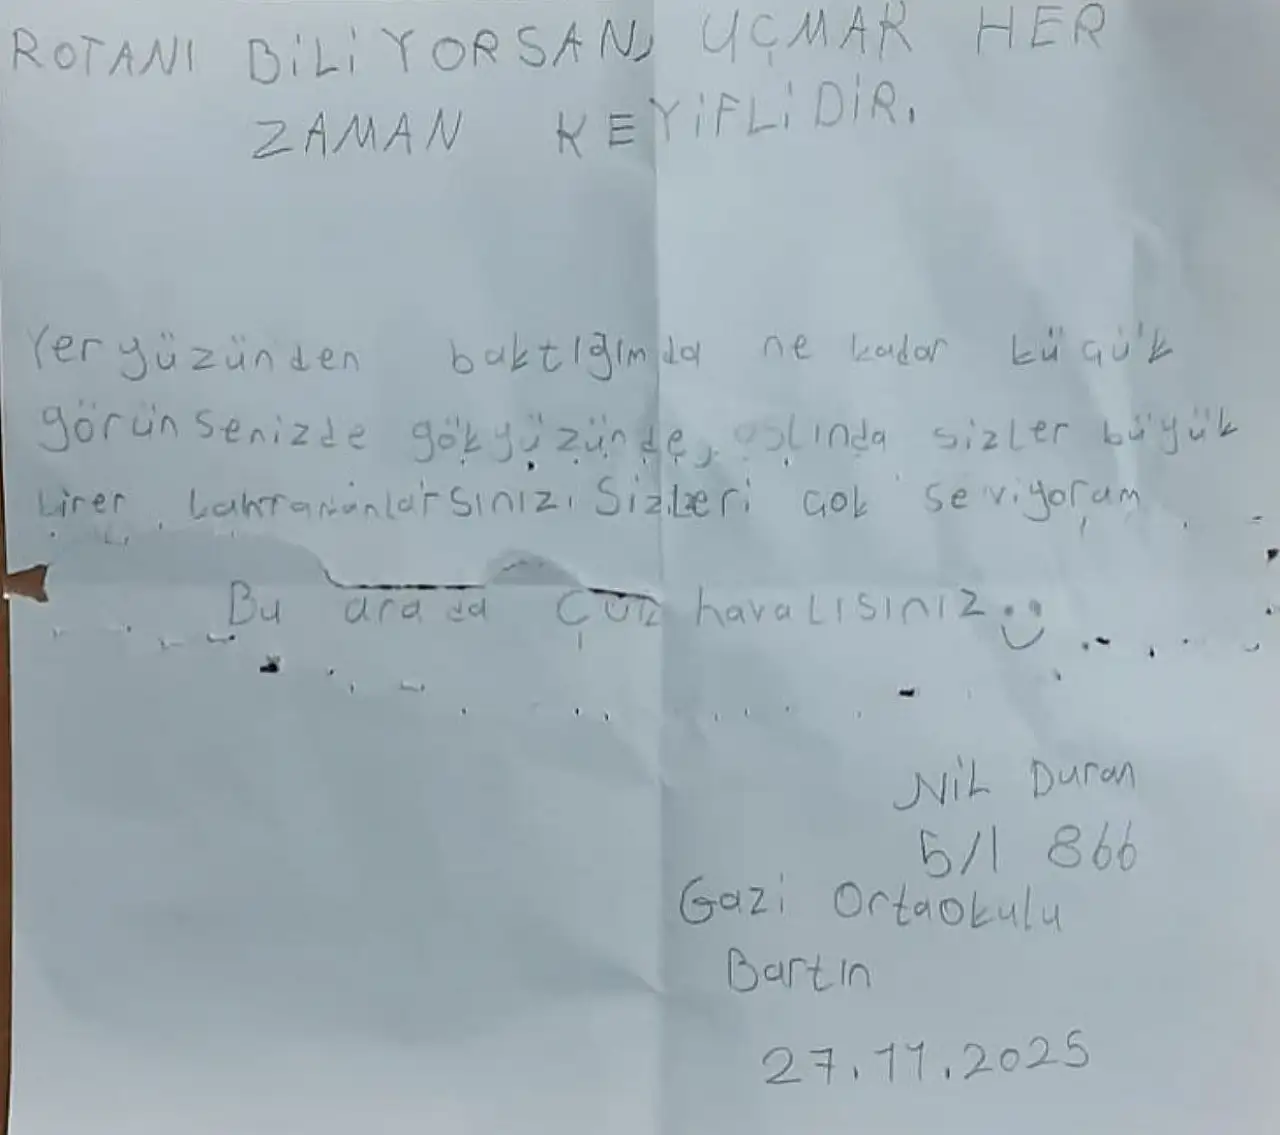 ROTANI BİLİYORSAN, UÇMAK HER
ZAMAN KEYİFLİDİR.
Yeryüzünden baktığımda ne kadar küçük
görünsenizde gökyüzünde, aslında sizler büyük
birer kahramanlarsınız. Sizleri çok seviyorum
Bu arada Çok havalısınız
Nil Duran
5/1 866
Gazi Ortaokulu
Bartın
27.11.2025